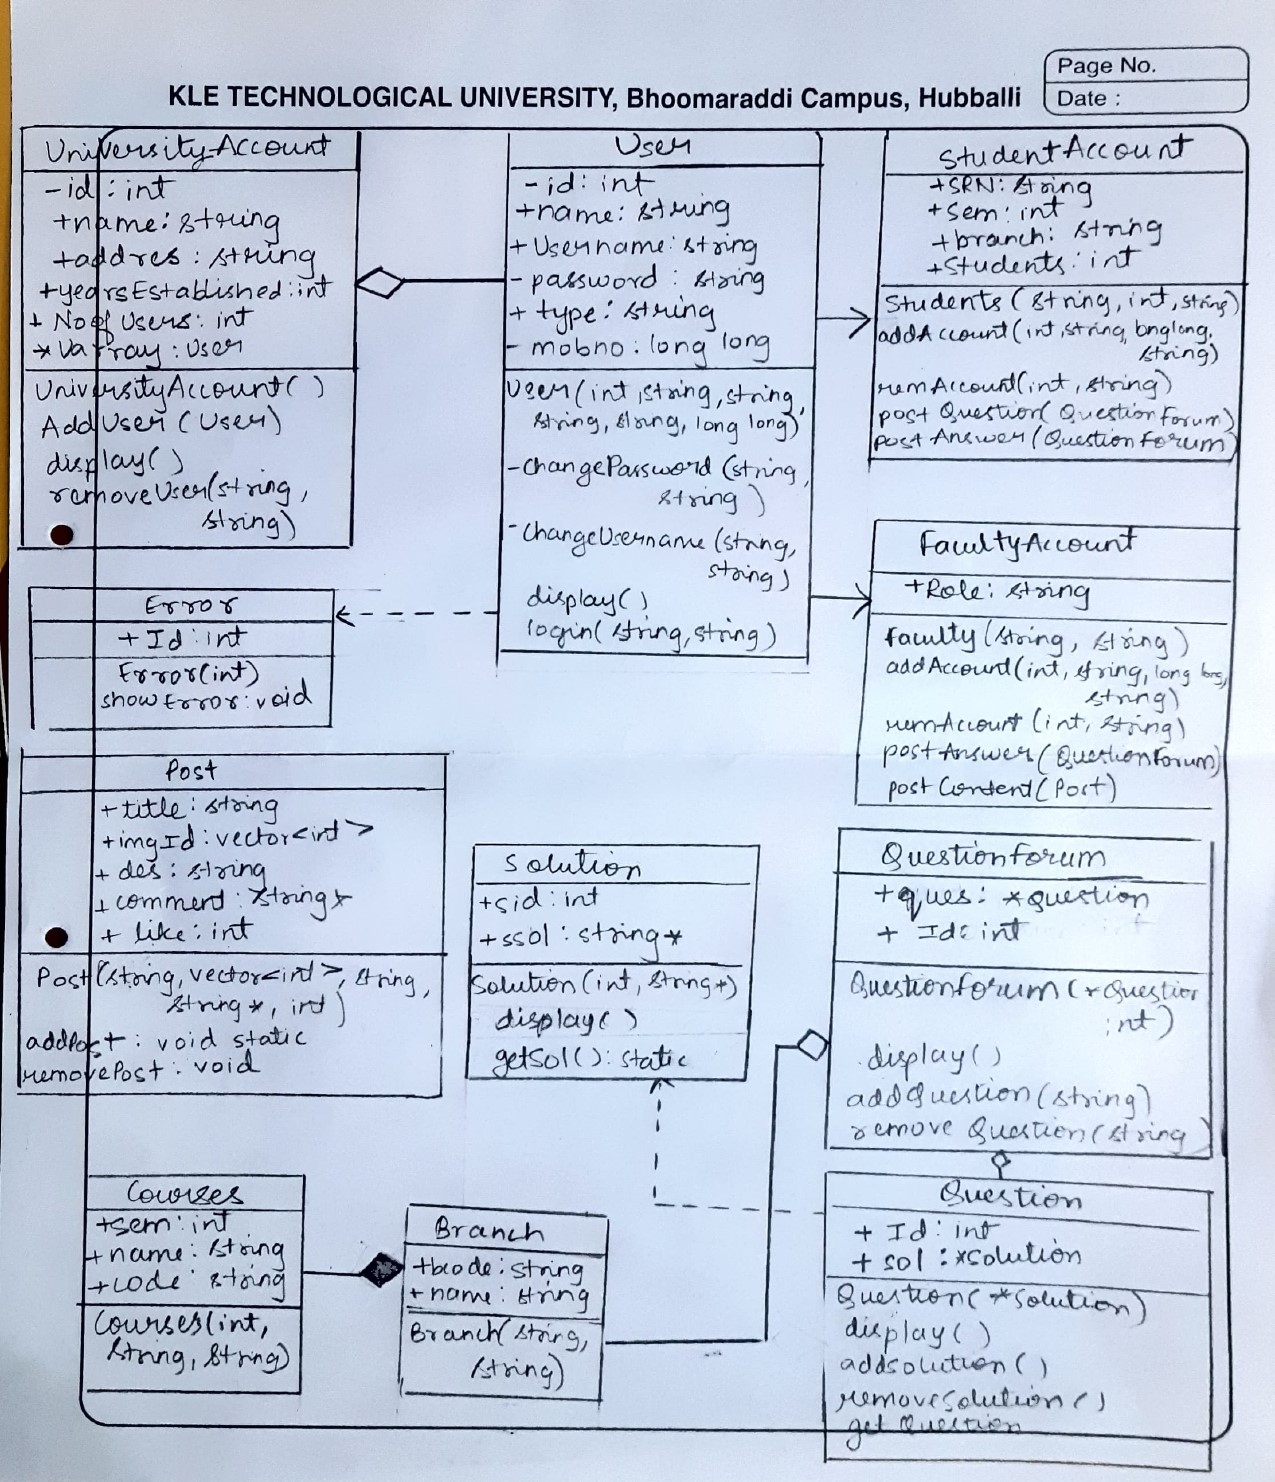 Page No.
Date :
KLE TECHNOLOGICAL UNIVERSITY, Bhoomaraddi Campus, Hubballi
UniversityAccount
-id : int
+name : string
+addres : string
+yearsEstablished : int
+ No of Users : int
* Varray : User
UniversityAccount( )
AddUser (User)
display( )
removeUser(string,
string)
User
-id : int
+name : string
+ Username : string
- password : string
+ type : string
- mobno : long long
User(int, string, string,
string, string, long long)
-changePassword (string,
string )
-changeUsername (string,
string)
display( )
login( string, string )
StudentAccount
+SRN : string
+sem : int
+branch : string
+students : int
Students ( string, int, string)
addAccount(int, string, long long,
string)
remAccount(int, string)
post Question( Question Forum)
post Answer (Question Forum)
FacultyAccount
+Role : string
faculty (string, string )
addAccount(int, string, long long,
string)
remAccount (int, string)
postAnswer (QuestionForum)
post Content( Post )
Error
+ Id : int
Error(int)
showError : void
Post
+title : string
+imgId : vector<int>
+ des : string
+ comment : string*
+ like : int
Post(string, vector<int>, string,
string*, int )
addPost : void static
removePost : void
Solution
+sid : int
+ssol : string*
Solution (int, string*)
display( )
getSol( ) : static
QuestionForum
+ques : *question
+ Id : int
QuestionForum (*Question
int)
display( )
addQuestion (string)
remove Question (string
Courses
+sem : int
+name : string
+code : string
Courses(int,
string, string)
Branch
+bcode : string
+name : string
Branch(string,
string)
Question
+ Id : int
+ sol : *solution
Question( *solution)
display( )
addsolution( )
removeSolution ( )
get Question